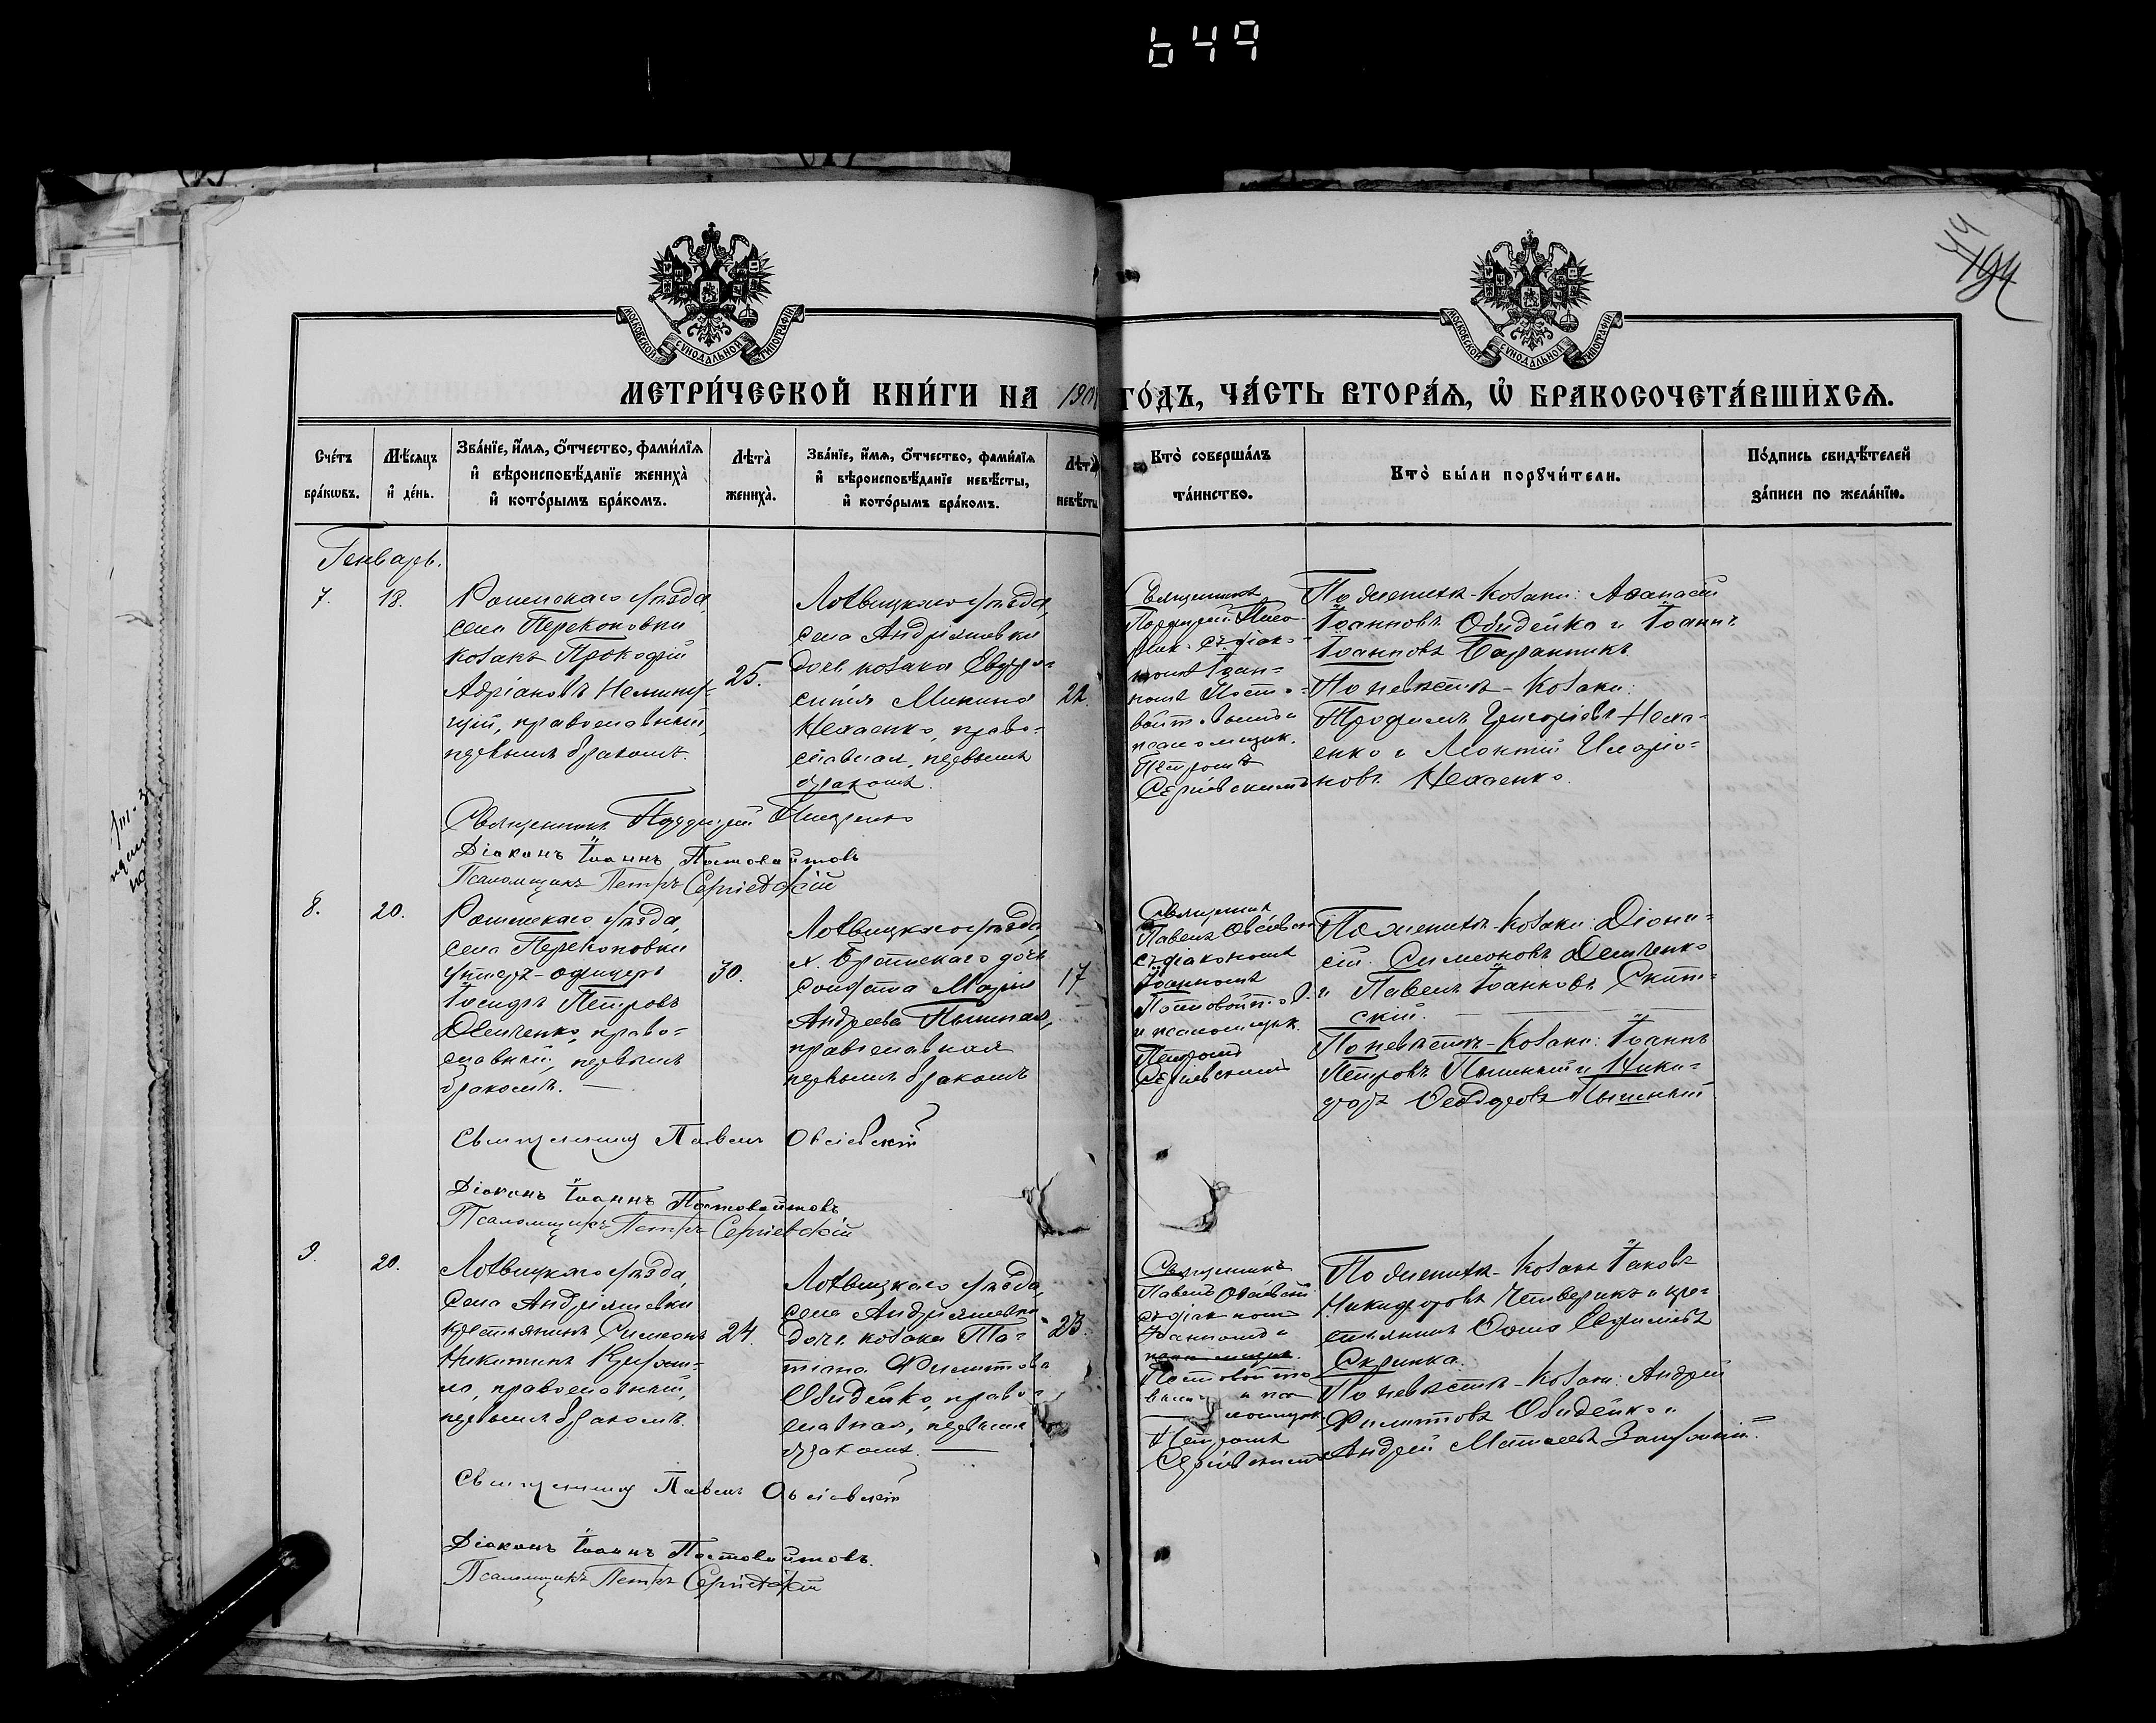 649
44
194
МОСКОВСКОЙ СУНОДАЛЬНОЙ ТИПОГРАФІИ
МОСКОВСКОЙ СУНОДАЛЬНОЙ ТИПОГРАФІИ
МЕТРИ́ЧЕСКОЙ КНИ́ГИ НА 190 ГО́ДЪ, ЧА́СТЬ ВТОРА́Я, Ѡ БРАКОСОЧЕТА́ВШИХСЯ.
Сче́тъ бра́кѡвъ.
Мѣ́сяцъ и де́нь.
Зва́нїе, и́мя, ѻ́тчество, фами́лїя и вѣроисповѣ́данїе жениха̀ и кото́рымъ бра́комъ.
Лѣта̀ жениха̀.
Зва́нїе, и́мя, ѻ́тчество, фами́лїя и вѣроисповѣ́данїе невѣ́сты, и кото́рымъ бра́комъ.
Лѣта̀ невѣ́сты
Кто̀ соверша́лъ та́инство.
Кто̀ бы́ли порꙋчи́тели.
По́дпись свидѣ́телей за́писи по жела́нїю.
Генварь.
7.
18.
Роменскаго уѣзда,
села Перекоповки
козакъ Прокофій
Адріановъ Немину-
щій, православный,
первымъ бракомъ.
25.
Лохвицкаго уѣзда,
села Андріяшевки
дочь козака Евфро-
синія Минина
Нехаенко, право-
славная, первымъ
бракомъ.
22.
Священникъ
съ діако-
номъ Іоан-
номъ Посто-
войтовымъ и
псаломщик.
Петромъ
Сергіевскимъ
По женихѣ - козаки: Аѳанасій
Іоанновъ Обидейко и Іоаннъ
Іоанновъ Барантикъ.
По невѣстѣ - козаки:
Трофимъ Григоріевъ Неха-
енко и Леонтій Иларіо-
новъ Нехаенко.
Священникъ
Діаконъ Іоаннъ Постовойтовъ
Псаломщикъ Петръ Сергіевскій
8.
20.
Роменскаго уѣзда,
села Перекоповки
унтеръ-офицеръ
Іосифъ Петровъ
Демченко, право-
славный, первымъ
бракомъ.
30.
Лохвицкаго уѣзда,
х. дочь
солдата Марія
Андреева Пышная,
православная
первымъ бракомъ
17
Священникъ
Павелъ Овсіевскій
съ діакономъ
Іоанномъ
Постовойтов.
и псаломщик.
Петромъ
Сергіевскимъ
По женихѣ - козаки: Діони-
сій Симеоновъ Демченко
и Павелъ Іоанновъ Скит-
скій.
По невѣстѣ - козаки: Іоаннъ
Петровъ Пышный и Ники-
форъ Ѳеодоровъ Пышный
Священникъ Павелъ Овсіевскій
Діаконъ Іоаннъ Постовойтовъ
Псаломщикъ Петръ Сергіевскій
9.
20.
Лохвицкаго уѣзда,
села Андріяшевки
крестьянинъ Симеонъ
Никитинъ
православный,
первымъ бракомъ.
24.
Лохвицкаго уѣзда,
села Андріяшевки
дочь козака Та-
тіана Филиппова
Обидейко, право-
славная, первымъ
бракомъ.
23.
Священникъ
Павелъ Овсіевскій
съ діакономъ
Іоанномъ и
Постовойто-
вымъ и пса-
ломщик.
Петромъ
Сергіевскимъ
По женихѣ - козакъ Іаковъ
Никифоровъ Четверикъ и кре-
стьянинъ Ѳома Евфимовъ
Скрипка.
По невѣстѣ - козаки: Андрей
Филипповъ Обидейко и
Андрей Матѳеевъ
Священникъ Павелъ Овсіевскій
Діаконъ Іоаннъ Постовойтовъ.
Псаломщикъ Петръ Сергіевскій